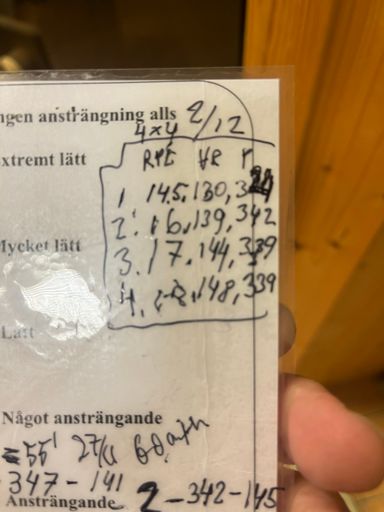 ngen ansträngning alls 2/12
4x4
xtremt lätt RPE HR P
1 14.5, 130, 3
2. 16, 139, 342
Mycket lätt
3. 17. 144, 339
4. 148, 339
Lätt
Något ansträngande
=55' 27/11
347 - 141
Ansträngande 2 - 342 - 145